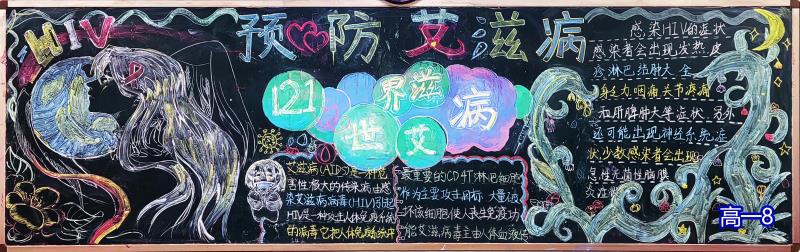 HIV
预防艾滋病
121
世界艾滋病
艾滋病(AIDS)是一种危
害性极大的传染病由感
染艾滋病病毒(HIV)引起
HIV是一种
的病毒它把人体免疫系统中
最重要的CD4T淋巴细胞
作为主要攻击目标大量破
坏该细胞使人丧失免疫功
能艾滋病毒主由人体血液传
感染HIV的症状
感染者会出现发热皮
疹淋巴结肿大全
身乏力咽痛关节疼痛
和肝脾肿大等症状另外
还可能出现神经系统症
状少数感染者会出现
急性无菌性脑膜
炎症
高一8